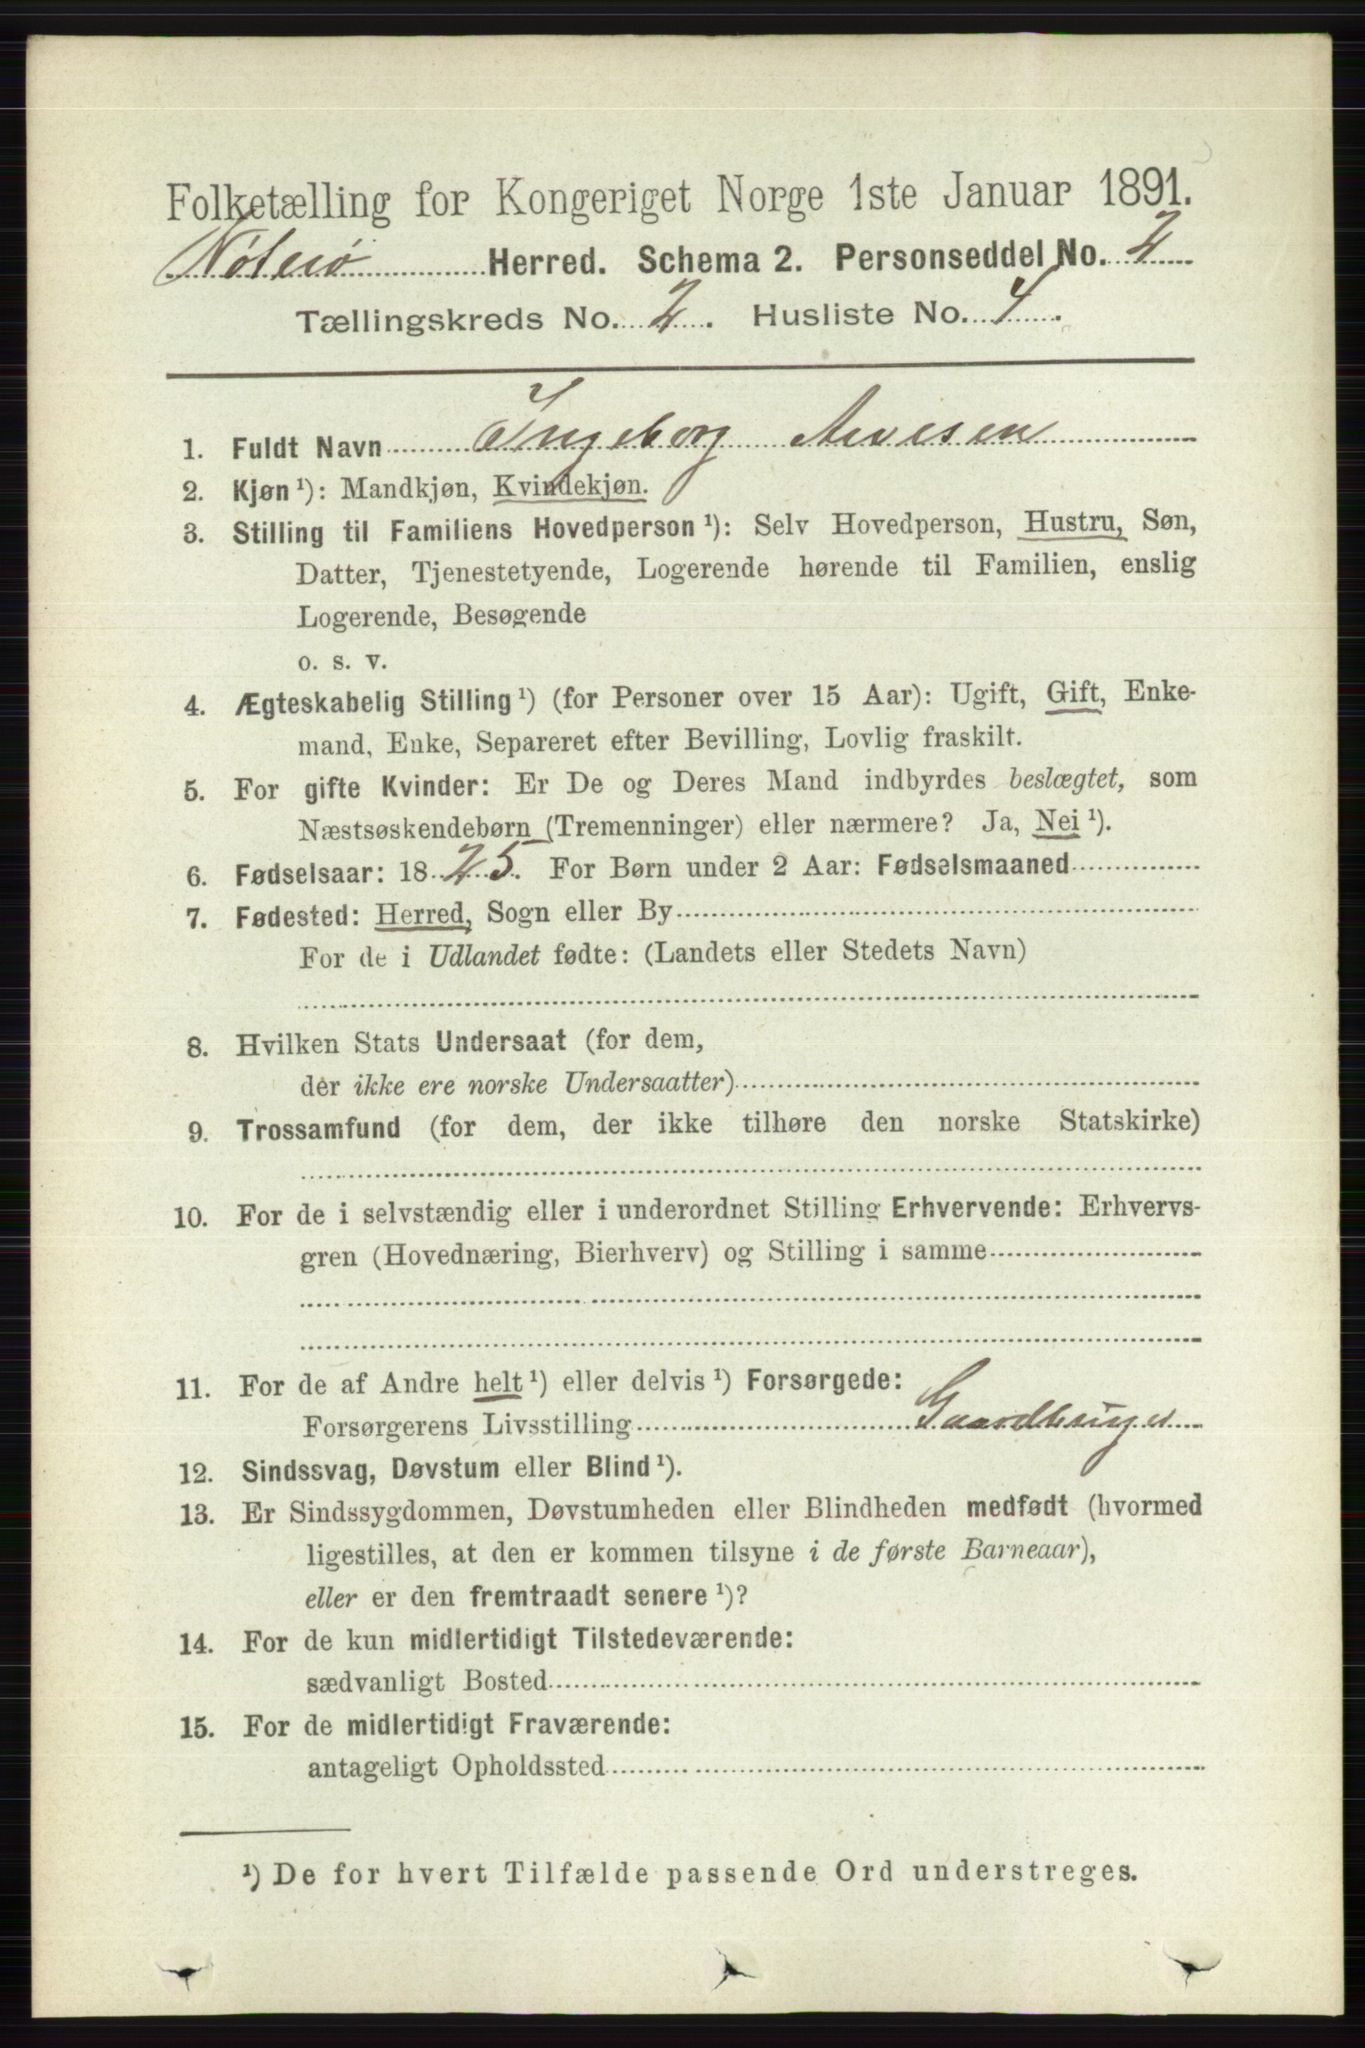 Folketælling for Kongeriget Norge 1ste Januar 1891.
Nøterø Herred. Schema 2. Personseddel No. 2
Tællingskreds No. 2. Husliste No. 4.
1. Fuldt Navn Ingeborg Arvesen
2. Kjøn ¹): Mandkjøn, Kvindekjøn.
3. Stilling til Familiens Hovedperson ¹): Selv Hovedperson, Hustru, Søn,
Datter, Tjenestetyende, Logerende hørende til Familien, enslig
Logerende, Besøgende
o. s. v.
4. Ægteskabelig Stilling ¹) (for Personer over 15 Aar): Ugift, Gift, Enke-
mand, Enke, Separeret efter Bevilling, Lovlig fraskilt.
5. For gifte Kvinder: Er De og Deres Mand indbyrdes beslægtet, som
Næstsøskendebørn (Tremenninger) eller nærmere? Ja, Nei ¹).
6. Fødselsaar: 1825. For Børn under 2 Aar: Fødselsmaaned
7. Fødested: Herred, Sogn eller By
For de i Udlandet fødte: (Landets eller Stedets Navn)
8. Hvilken Stats Undersaat (for dem,
der ikke ere norske Undersaatter)
9. Trossamfund (for dem, der ikke tilhøre den norske Statskirke)
10. For de i selvstændig eller i underordnet Stilling Erhvervende: Erhvervs-
gren (Hovednæring, Bierhverv) og Stilling i samme
11. For de af Andre helt ¹) eller delvis ¹) Forsørgede:
Forsørgerens Livsstilling Gaardbruger
12. Sindssvag, Døvstum eller Blind ¹).
13. Er Sindssygdommen, Døvstumheden eller Blindheden medfødt (hvormed
ligestilles, at den er kommen tilsyne i de første Barneaar),
eller er den fremtraadt senere ¹)?
14. For de kun midlertidigt Tilstedeværende:
sædvanligt Bosted
15. For de midlertidigt Fraværende:
antageligt Opholdssted
¹) De for hvert Tilfælde passende Ord understreges.